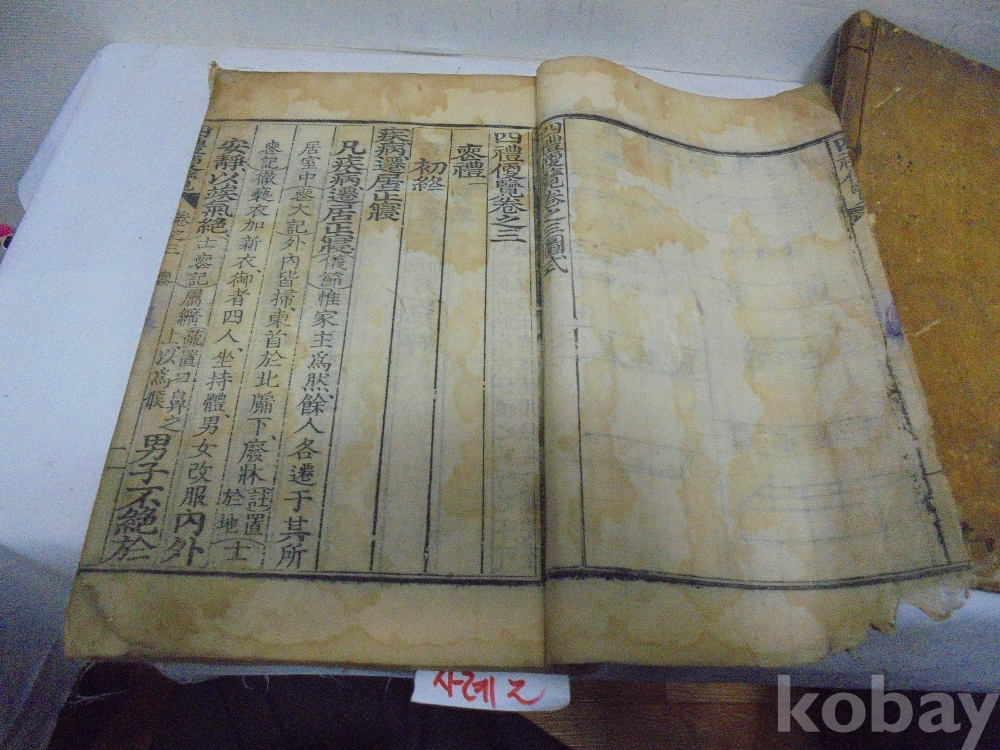 四禮便
四禮便覽卷之三圖式
四禮便覽卷之三
喪禮一
初終
疾病遷居正寢
凡疾病遷居正寢儀節惟家主爲然、餘人各遷于其所
居室中喪大記外內皆掃、東首於北牖下、廢牀註置於地士
喪記徹褻衣加新衣、御者四人、坐持體、男女改服內外
安靜以竢氣絶士喪記屬纊疏置口鼻之上以爲候男子不絶於
사례 2
kobay